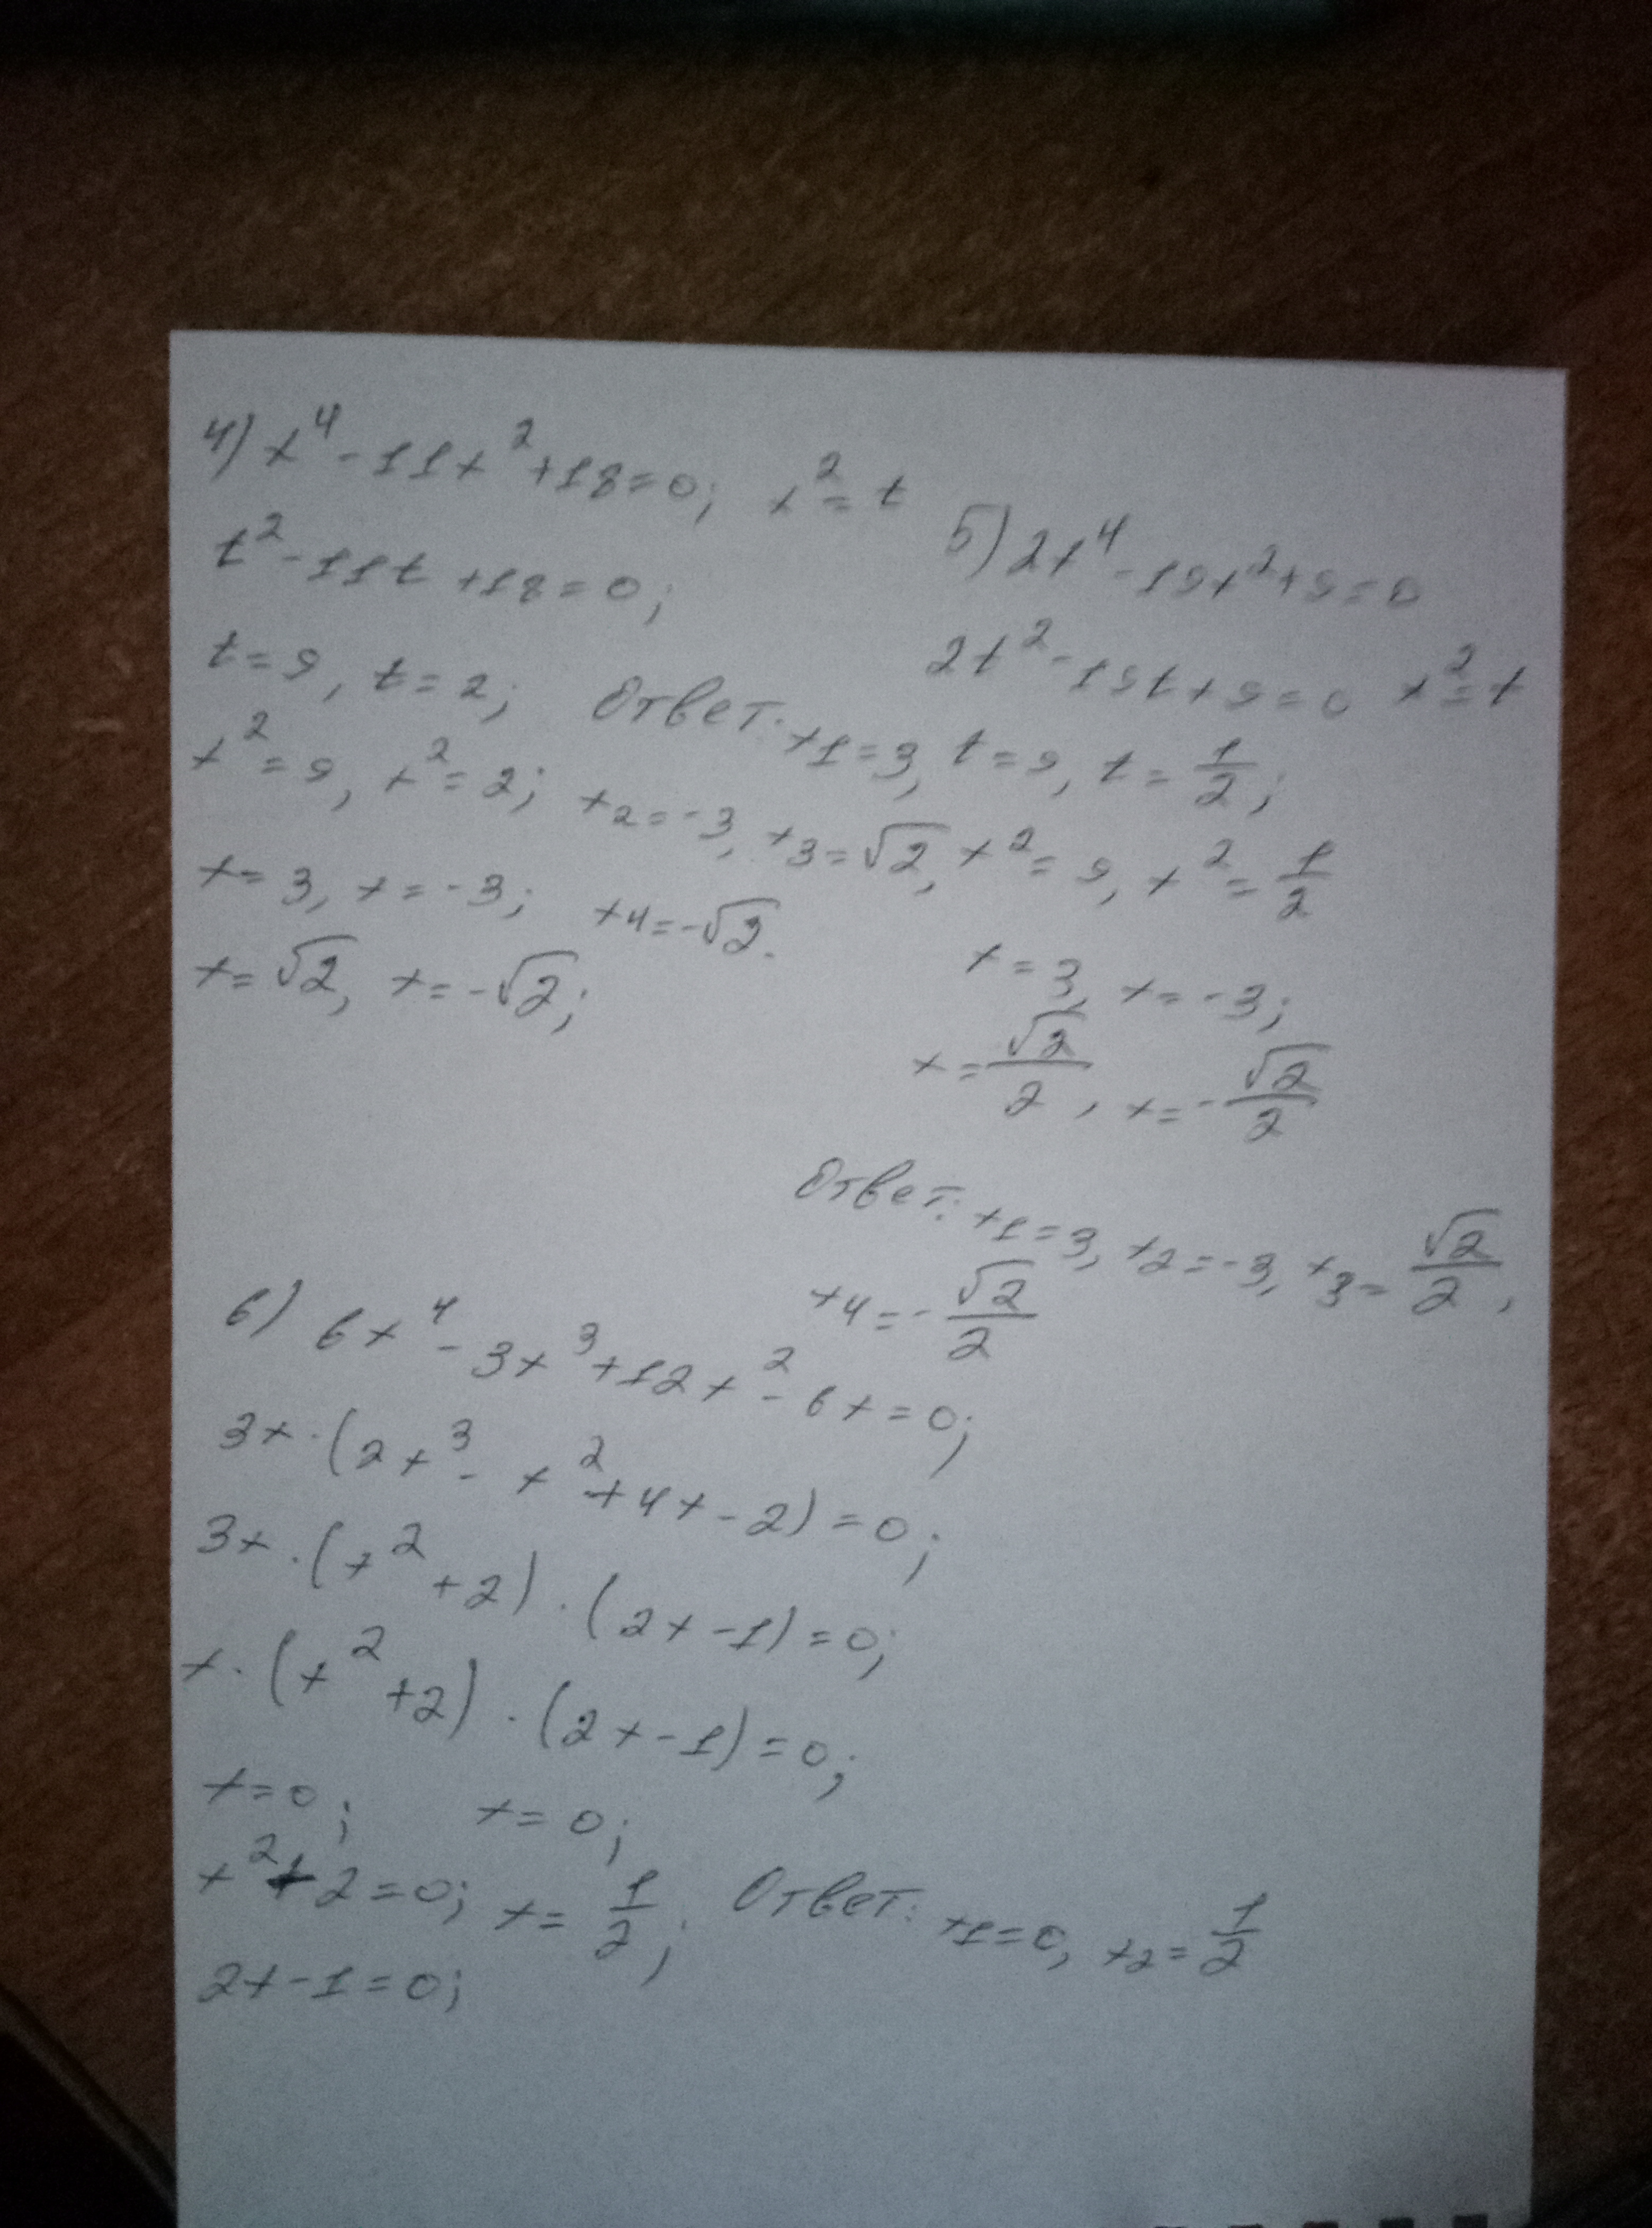 4) x⁴ - 11x² + 18 = 0; x² = t
t² - 11t + 18 = 0;
t = 9, t = 2;
x² = 9, x² = 2;
x = 3, x = -3;
x = √2, x = -√2;
Ответ: x1 = 3,
x2 = -3, x3 = √2,
x4 = -√2.
5) 2x⁴ - 19x² + 9 = 0
2t² - 19t + 9 = 0 x² = t
t = 9, t = 1/2;
x² = 9, x² = 1/2
x = 3, x = -3;
x = √2/2, x = -√2/2
Ответ: x1 = 3, x2 = -3, x3 = √2/2,
x4 = -√2/2
6) 6x⁴ - 3x³ + 12x² - 6x = 0;
3x · (2x³ - x² + 4x - 2) = 0;
3x · (x² + 2) · (2x - 1) = 0;
x · (x² + 2) · (2x - 1) = 0;
x = 0; x = 0;
x² + 2 = 0; x = 1/2; Ответ: x1 = 0, x2 = 1/2
2x - 1 = 0;